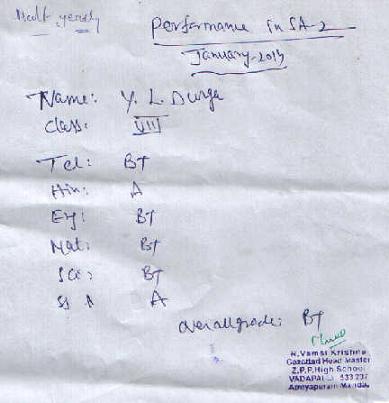 Half yearly
Performance in SA-2
January-2013
Name: Y. L. Durga
Class: VII
Tel: B+
Hin: A
Eng: B+
Mat: B+
Sci: B+
SS A
Overall grade: B+
R.Vamsi Krishna
Gazetted Head Master
Z.P.P.High School
VADAPALLI 533 237
Atreyapuram Mandal